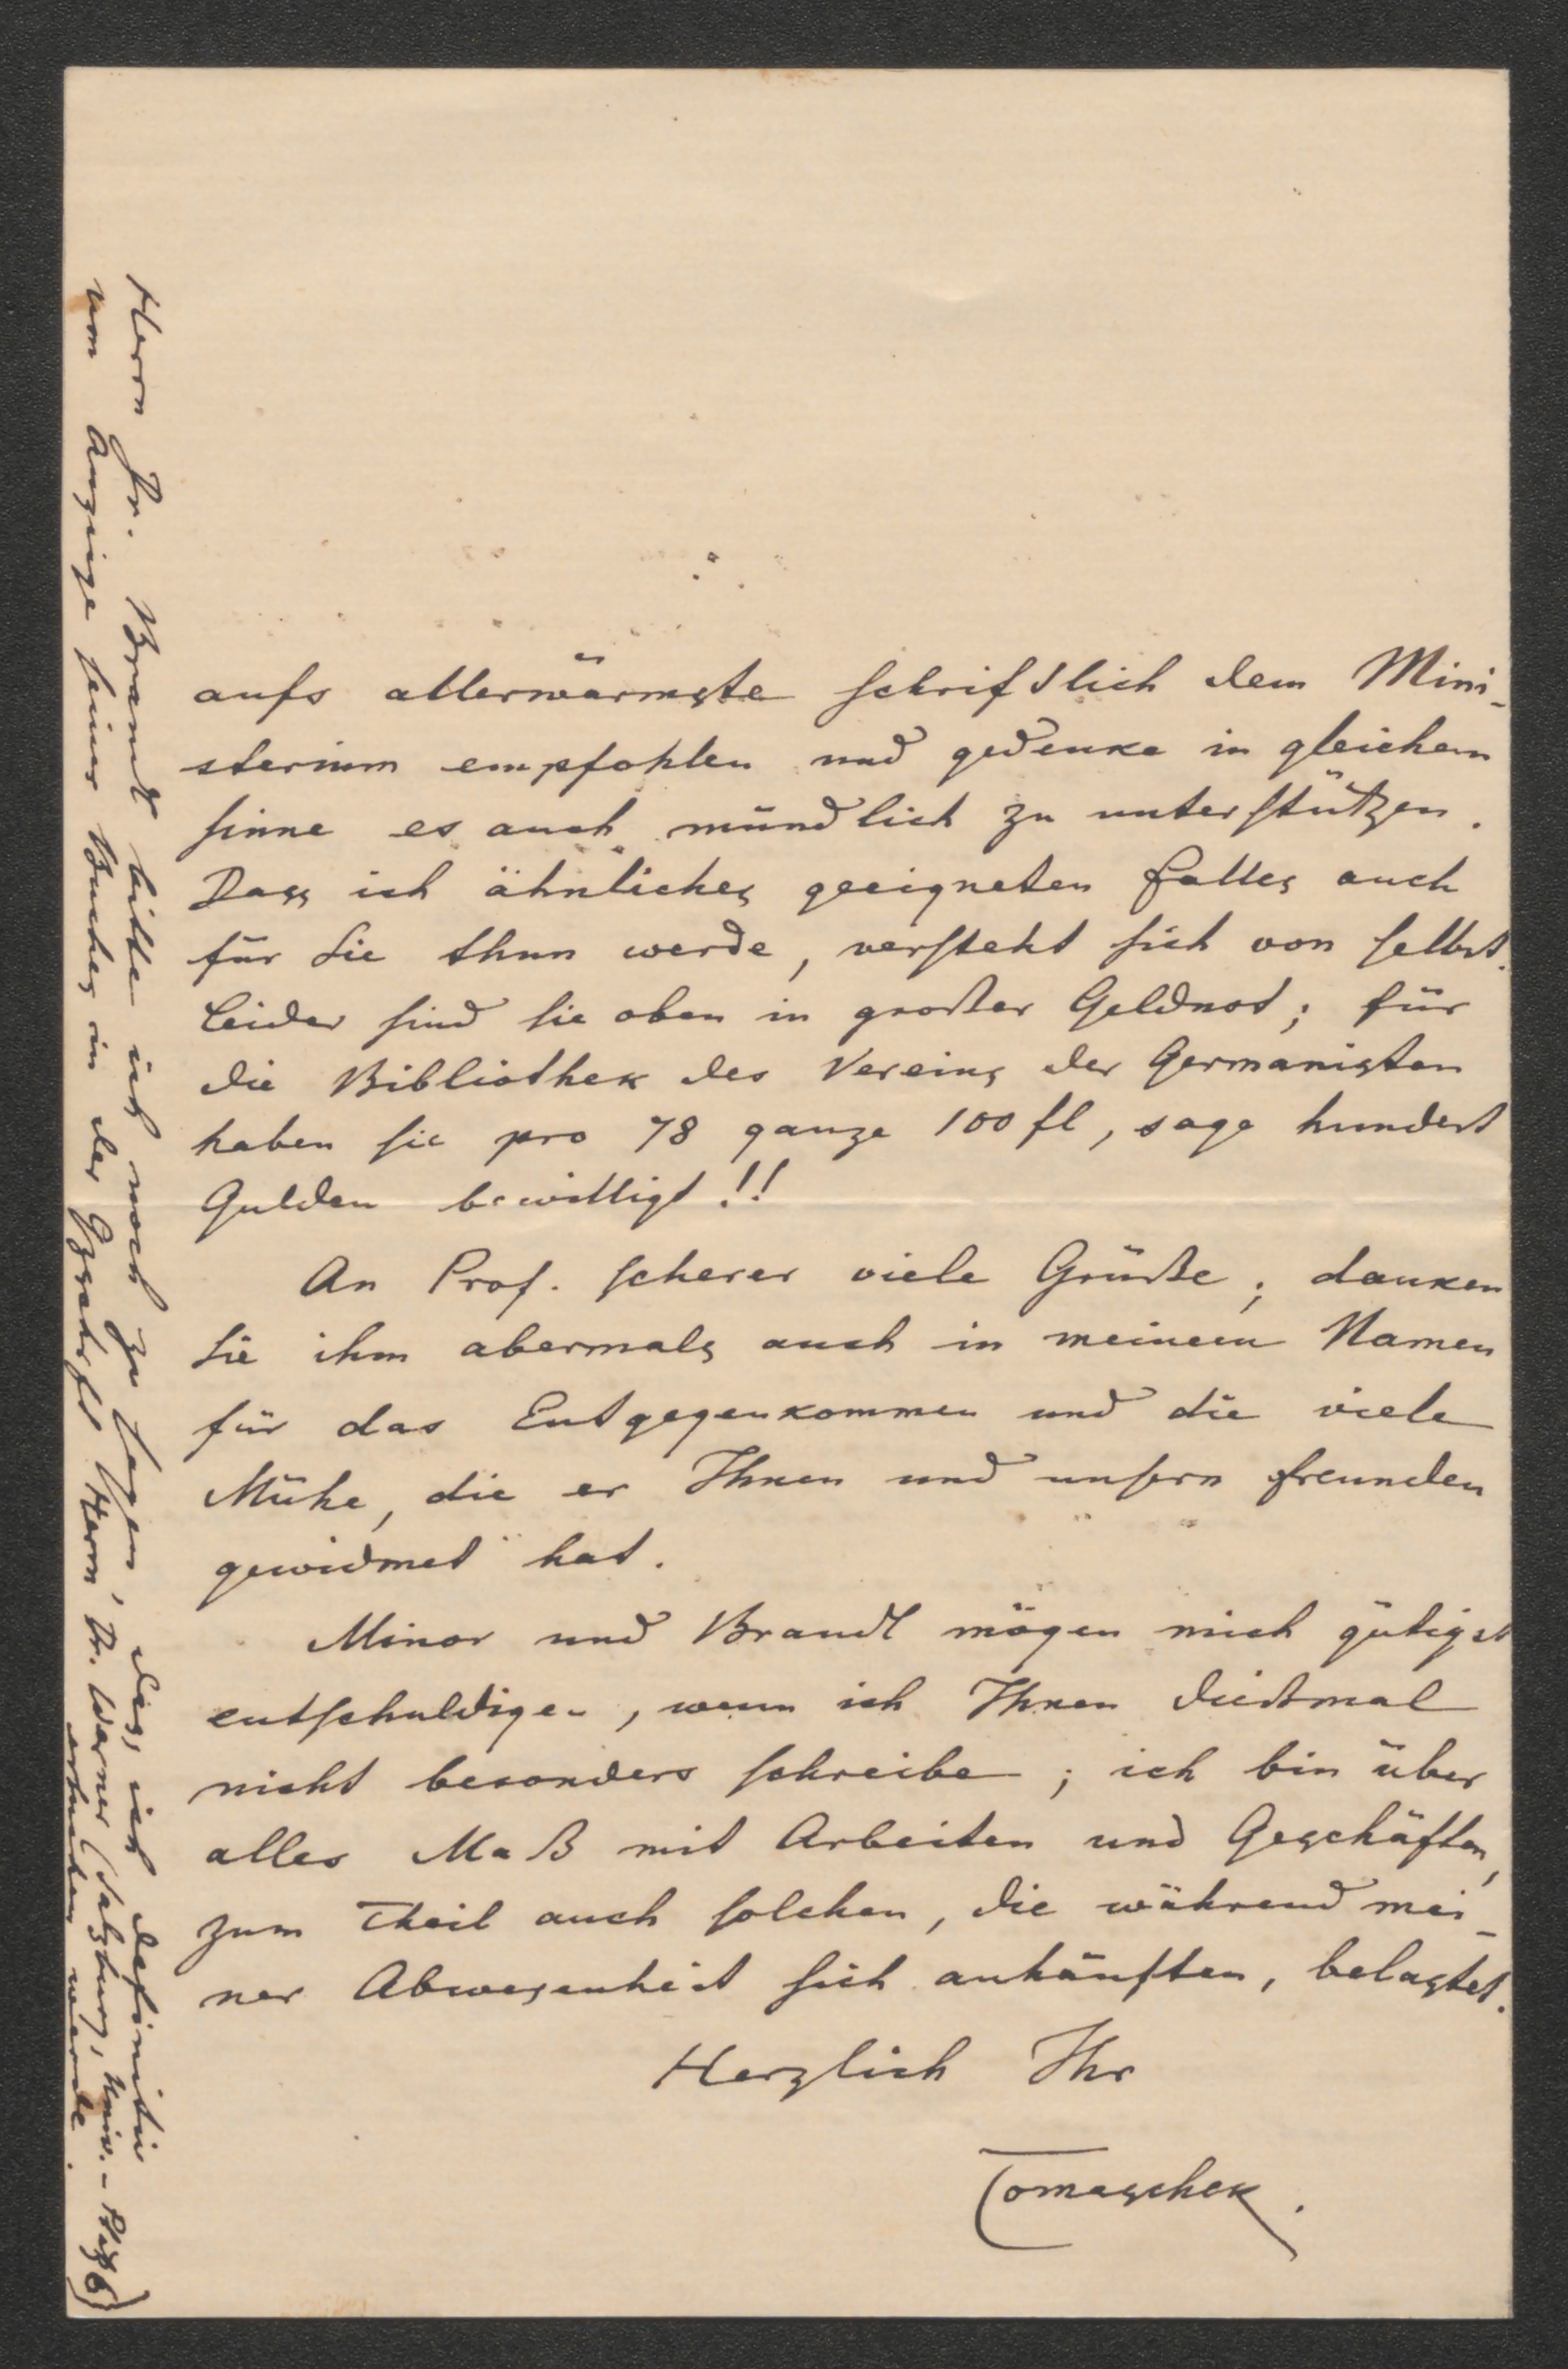 aufs allerwärmste schriftlich dem Mini-
sterium empfohlen und gedenke in gleichem
Sinne es auch mündlich zu unterstützen.
Dass ich ähnliches geeigneten Falles auch
für Sie thun werde, versteht sich von selbst.
Leider sind sie oben in großer Geldnot; für
die Bibliothek des Vereins der Germanisten
haben sie pro 78 ganze 100 fl, sage hundert
Gulden bewilligt!!
An Prof. Scherer viele Grüße; danken
Sie ihm abermals auch in meinem Namen
für das Entgegenkommen und die viele
Mühe, die er Ihnen und unsern Freunden
gewidmet hat.
Minor und Brandl mögen mich gütigst
entschuldigen, wenn ich Ihnen dießmal
nicht besonders schreibe; ich bin über
alles Maß mit Arbeiten und Geschäften,
zum Theil auch solchen, die während mei-
ner Abwesenheit sich anhäuften, belastet.
Herzlich Ihr
Tomaschek.
Herrn Dr. Brandl bitte ich noch zu sagen, dass ich definitiv
um Anzeige seines Buches in der Gzschrft Herrn Dr. Werner (Salzburg, Univ.-Platz 6)
ersuchen werde.